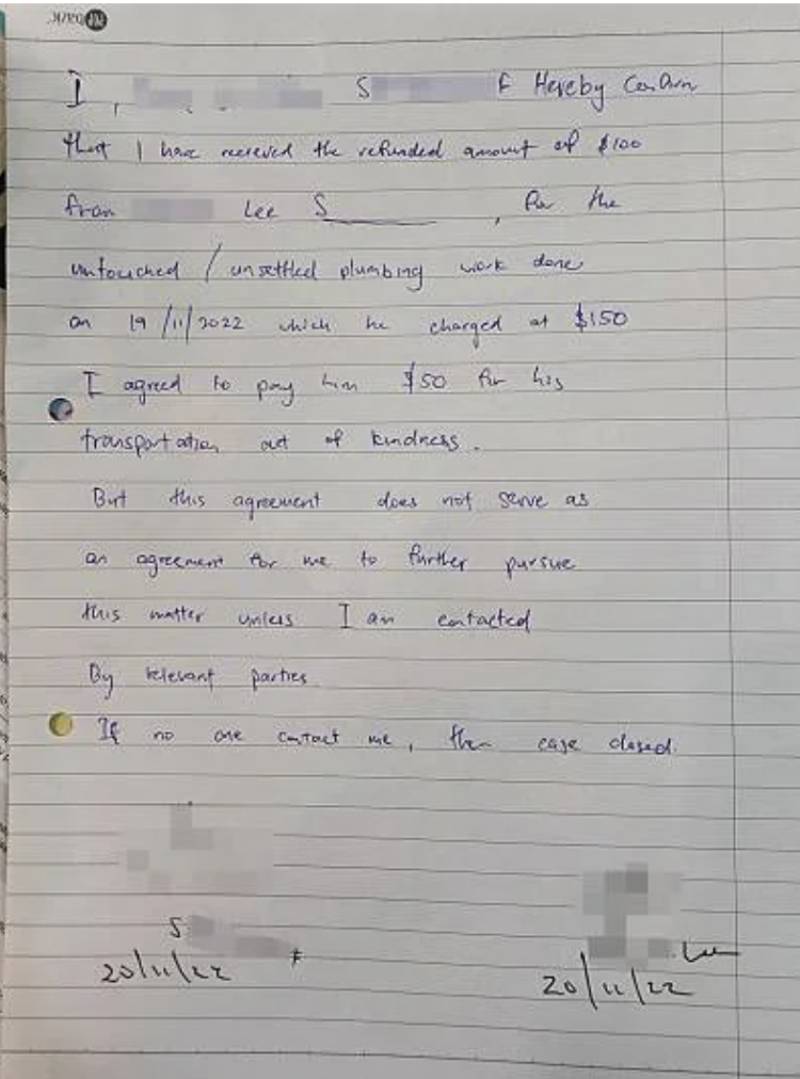 I, S F Hereby Confirm
that I have recieved the refunded amount of $100
from Lee S________, for the
untouched / unsettled plumbing work done
on 19/11/2022 which he charged at $150
I agreed to pay him $50 for his
transportation out of kindness.
But this agreement does not serve as
an agreement for me to further pursue
this matter unless I am contacted
By relevant parties
If no one contact me, then case closed.
S
20/11/22
Lee
20/11/22